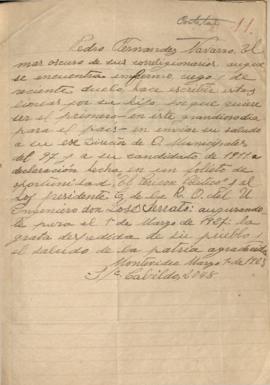 11.
Pedro Fernandez Navarro, El
mas oscuro de sus correligionarios aunque
se encuentra enfermo, ciego y de
reciente duelo, hace escribir estas
lineas por su hijo, porque quiere
ser el primero en este grandioso dia
para el pais en enviar su saludo
a su ex
del 97 y a su candidato de 1911. a
declaración hecha en un folleto de
oportunidad "El Político" y al
Ex presidente C. de la R. O. del U
Ingeniero don José Serrato: augurando
le para el 1º de Marzo de 1927. la
grata despedida de su pueblo y
el saludo de la patria agradecida
Montevideo Marzo 1º de 1923
S/c Cabildo, 2048